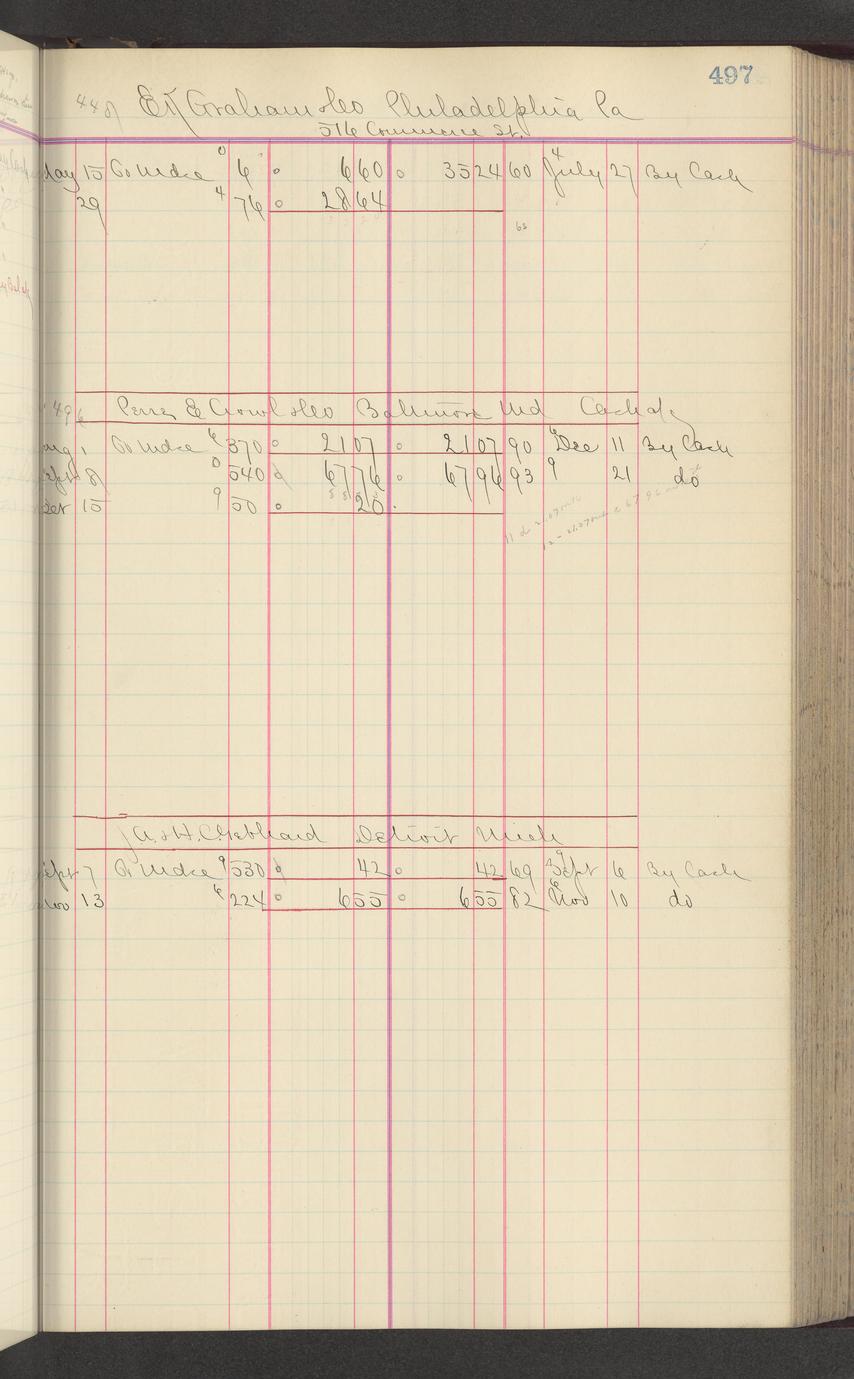 497
448 E K Graham & Co Philadelphia Pa
516 Commerce St.
May 15 To Mdse 0 6 660 3524 60 4 July 27 By Cash
29 4 76 2864
63
496 Perry E Crowl & Co Baltimore Md Cash dy
Aug 1 To Mdse 6 370 2107 2107 90 6 Dec 11 By Cash
Sept 8 0 540 6776 6796 93 9 21 do
Oct 15 9 50 20
J A & H Gebhard Detroit Mich
Sept 7 To Mdse 9 530 42 42 69 9 Sept 6 By Cash
Nov 13 6 224 655 655 82 6 Nov 10 do